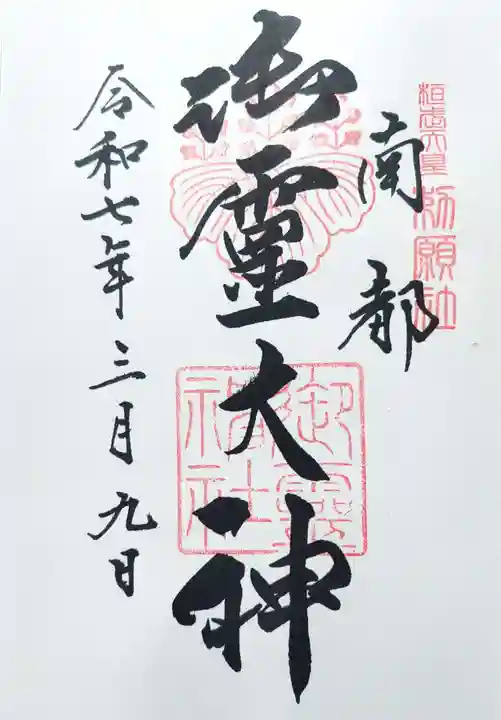 桓武天皇勅願社
南都
御靈大神
御霊神社
令和七年三月九日